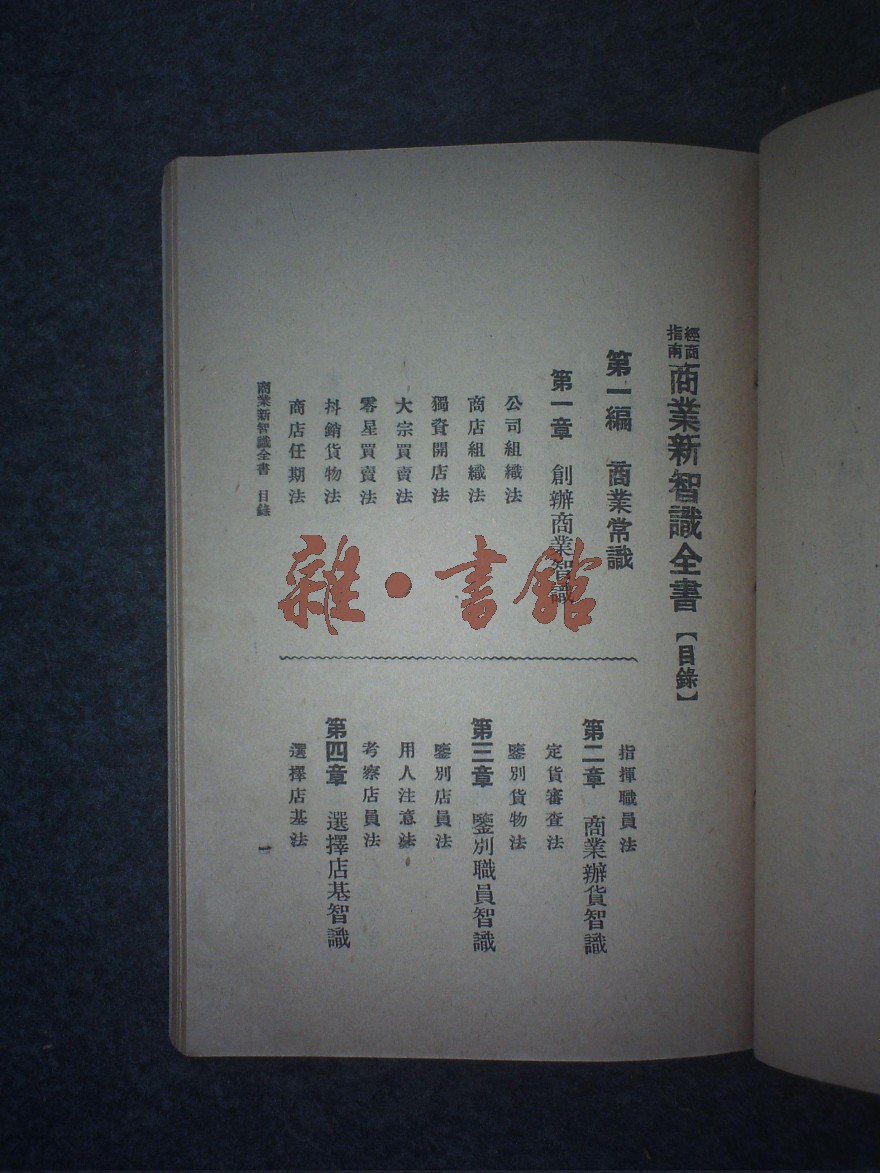 經商指南 商業新智識全書【目錄】
第一編 商業常識
第一章 創辦商業智識
公司組織法
商店組織法
獨資開店法
大宗買賣法
零星買賣法
抖銷貨物法
商店任期法
指揮職員法
第二章 商業辦貨智識
定貨審查法
鑒別貨物法
第三章 鑒別職員智識
鑒別店員法
用人注意法
考察店員法
第四章 選擇店基智識
選擇店基法
商業新智識全書 目錄
一
雜·書館